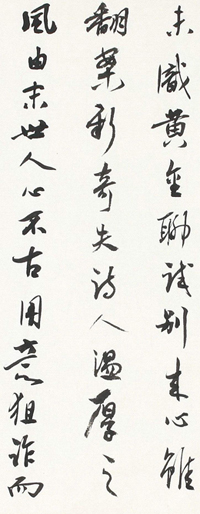 未識黃金聊試別來心雖
翻案新奇失詩人溫厚之
風由末世人心不古用意狙詐而